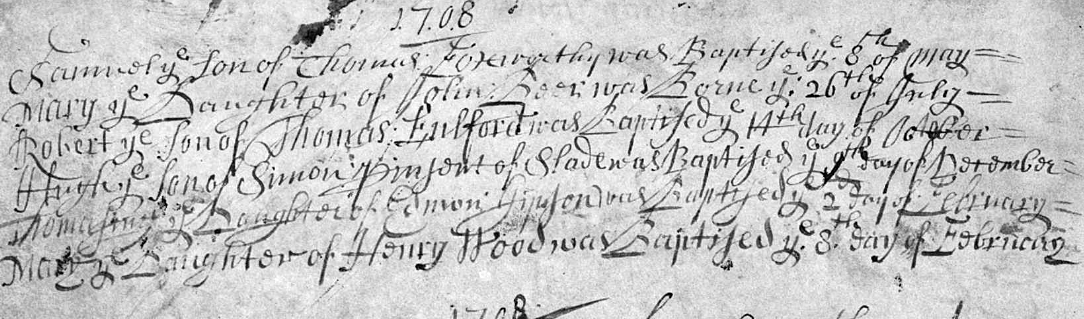 1708
Samuel ye Son of Thomas Foxworthy was Baptised ye 8th of may
Mary ye Daughter of John Beer was Borne ye 26th of July
Robert ye Son of Thomas Fulford was Baptised ye 11th day of October
Hugh ye Son of Simon Pinsent of Slade was Baptised ye 9th day of December
Thomasin ye Daughter of Edmon was Baptised ye 2d day of February
Mary ye Daughter of Henry Wood was Baptised ye 8th day of February
1708